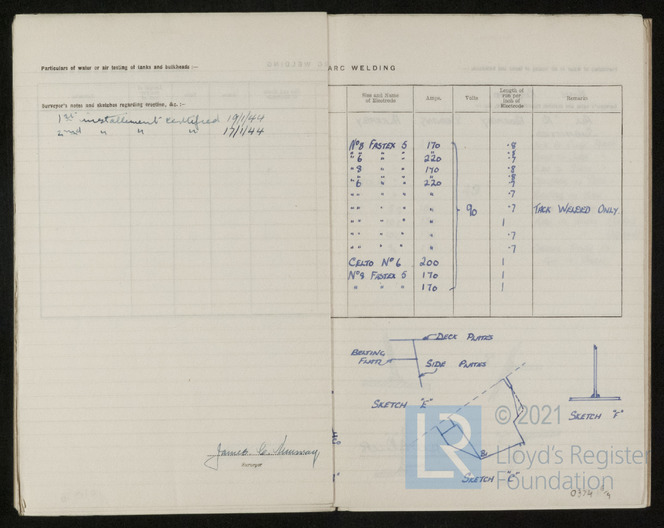 Particulars of water or air testing of tanks and bulkheads :—
Surveyor's notes and sketches regarding erection, &c. :—
1st installment certified 19/1/44
2nd " " " 17/1/44
Surveyor
ARC WELDING
Size and Name of Electrode Amps. Volts Length of run per inch of Electrode Remarks
Nº8 FASTEX 5 170 ·8
" 6 " " 220 ·7
" 8 " " 170 ·8
" 6 " " 220 ·7
" " " " " ·7
" " " " " 90 ·7 TACK WELDED ONLY
" " " " " 1
" " " " " ·7
" " " " " ·7
CELTO Nº6 200 1
Nº8 FASTEX 5 170 1
" " " 170 1
DECK PLATES
BELTING
SIDE PLATES
SKETCH "E"
SKETCH "F"
SKETCH "E"
LR
© 2021
Lloyd's Register
Foundation